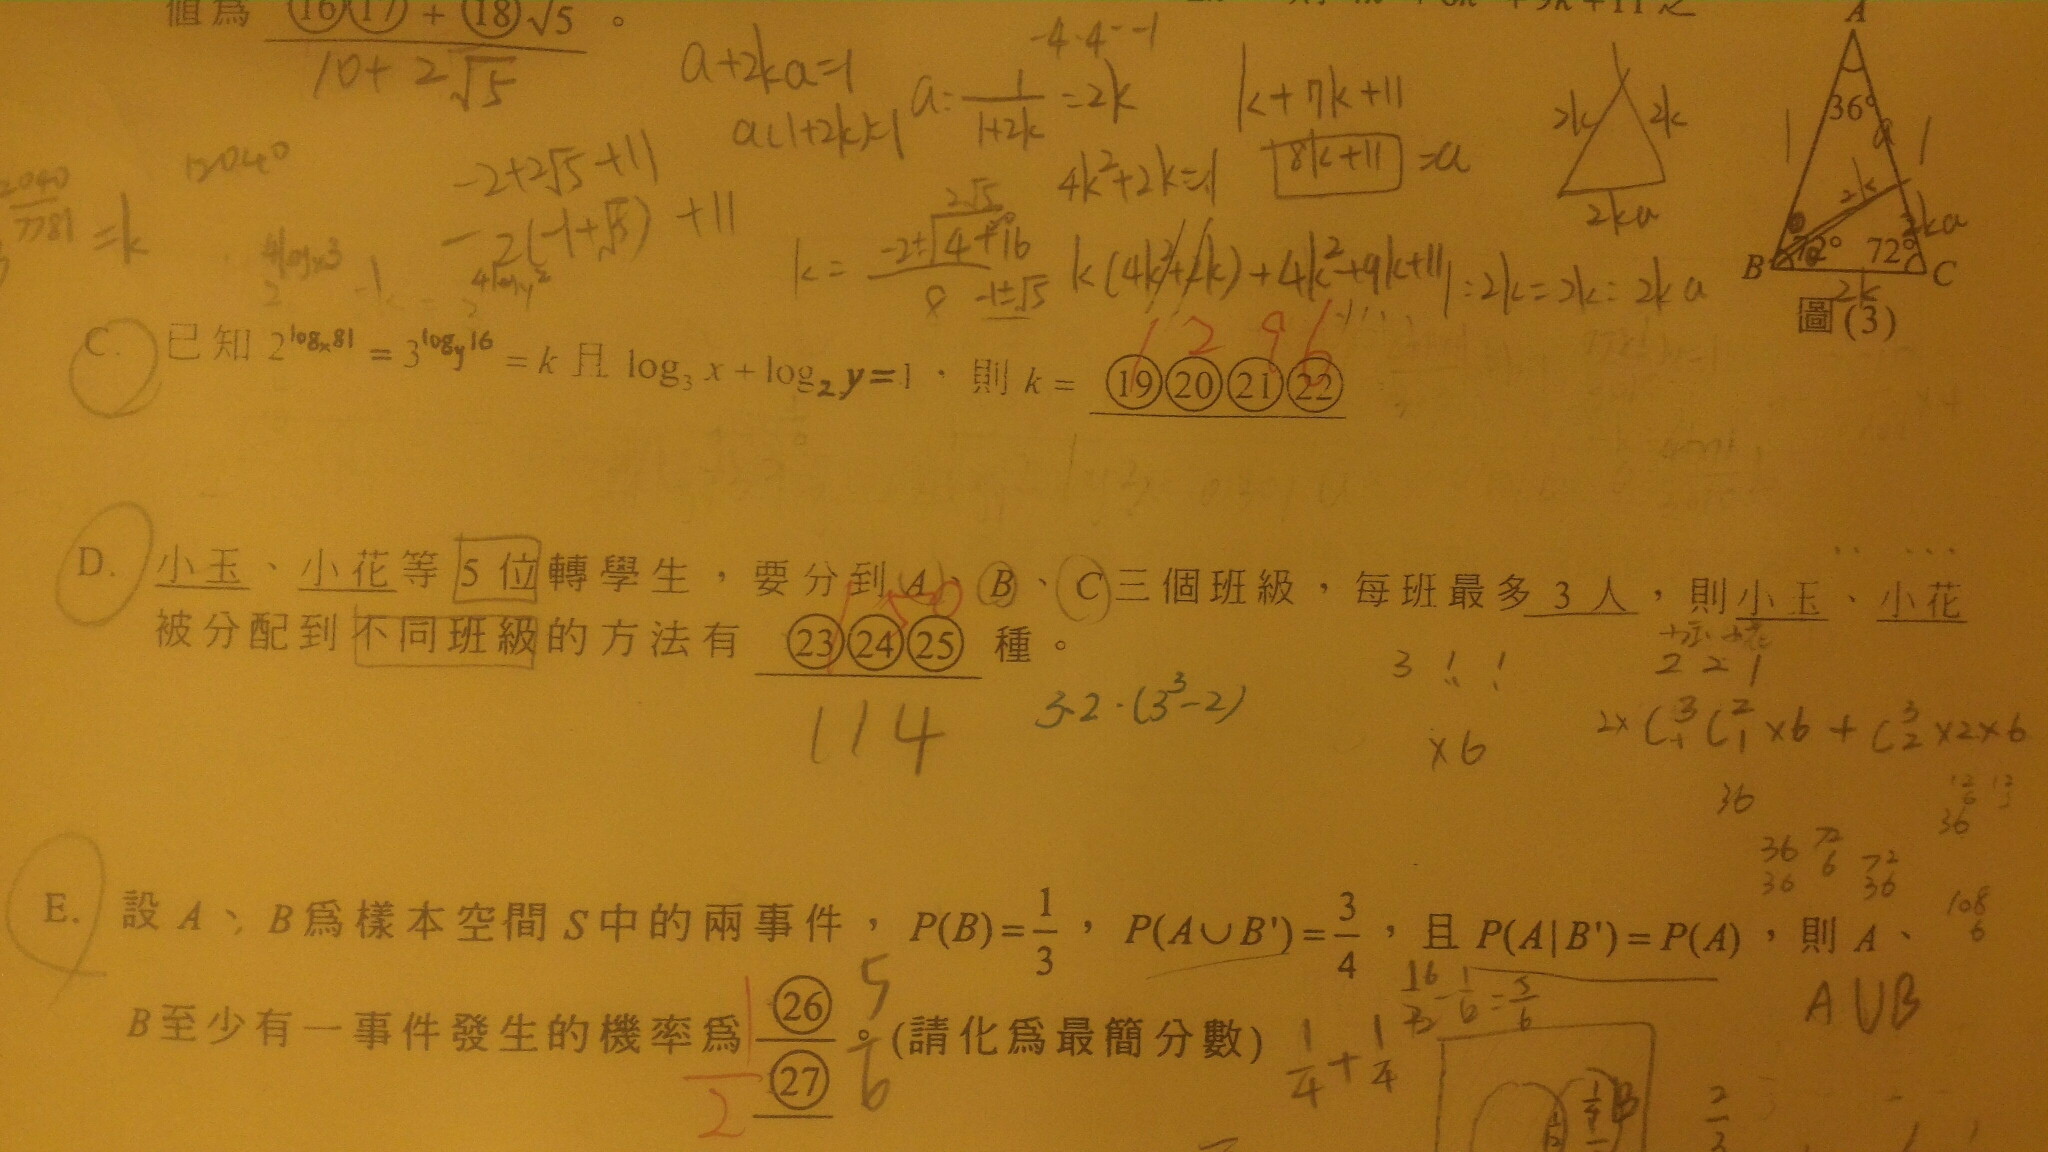 值為 ⑯⑰ + ⑱√5 。
10 + 2√5
a+2ka=1
a(1+2k)=1
a = 1/(1+2k) = 2k
-4·4·-1
k+7k+11
8k+11 = a
4k²+2k=1
-2+2√5+11
2(-1+√5) +11
k = (-2±√(4+16))/8
2√5
-1±√5
k(4k²+2k)+4k²+9k+11
1:2k=2k:2ka
2k 2k
2ka
A
36°
a
1 1
2k
2ka
B 72° 72° C
2k
圖(3)
12040
=k
C. 已知 2^{log_x 81} = 3^{log_y 16} = k 且 log₃ x + log₂ y = 1,則 k = ⑲⑳㉑㉒
1296
D. 小玉、小花等 5 位轉學生,要分到 A、B、C 三個班級,每班最多 3 人,則小玉、小花
被分配到不同班級的方法有 ㉓㉔㉕ 種。
150
114
3·2·(3³-2)
3 1 1
×6
2 2 1
2×C³₁C²₁×6+C³₂×2×6
36
36
36 72 72
36 6 36
108
6
E. 設 A、B為樣本空間 S中的兩事件,P(B)=1/3,P(A∪B')=3/4,且 P(A|B')=P(A),則 A、
B至少有一事件發生的機率為 ㉖/㉗ 。(請化為最簡分數)
1/2
5/6
1/4+1/4
-1/6=5/6
A∪B
B
2/3